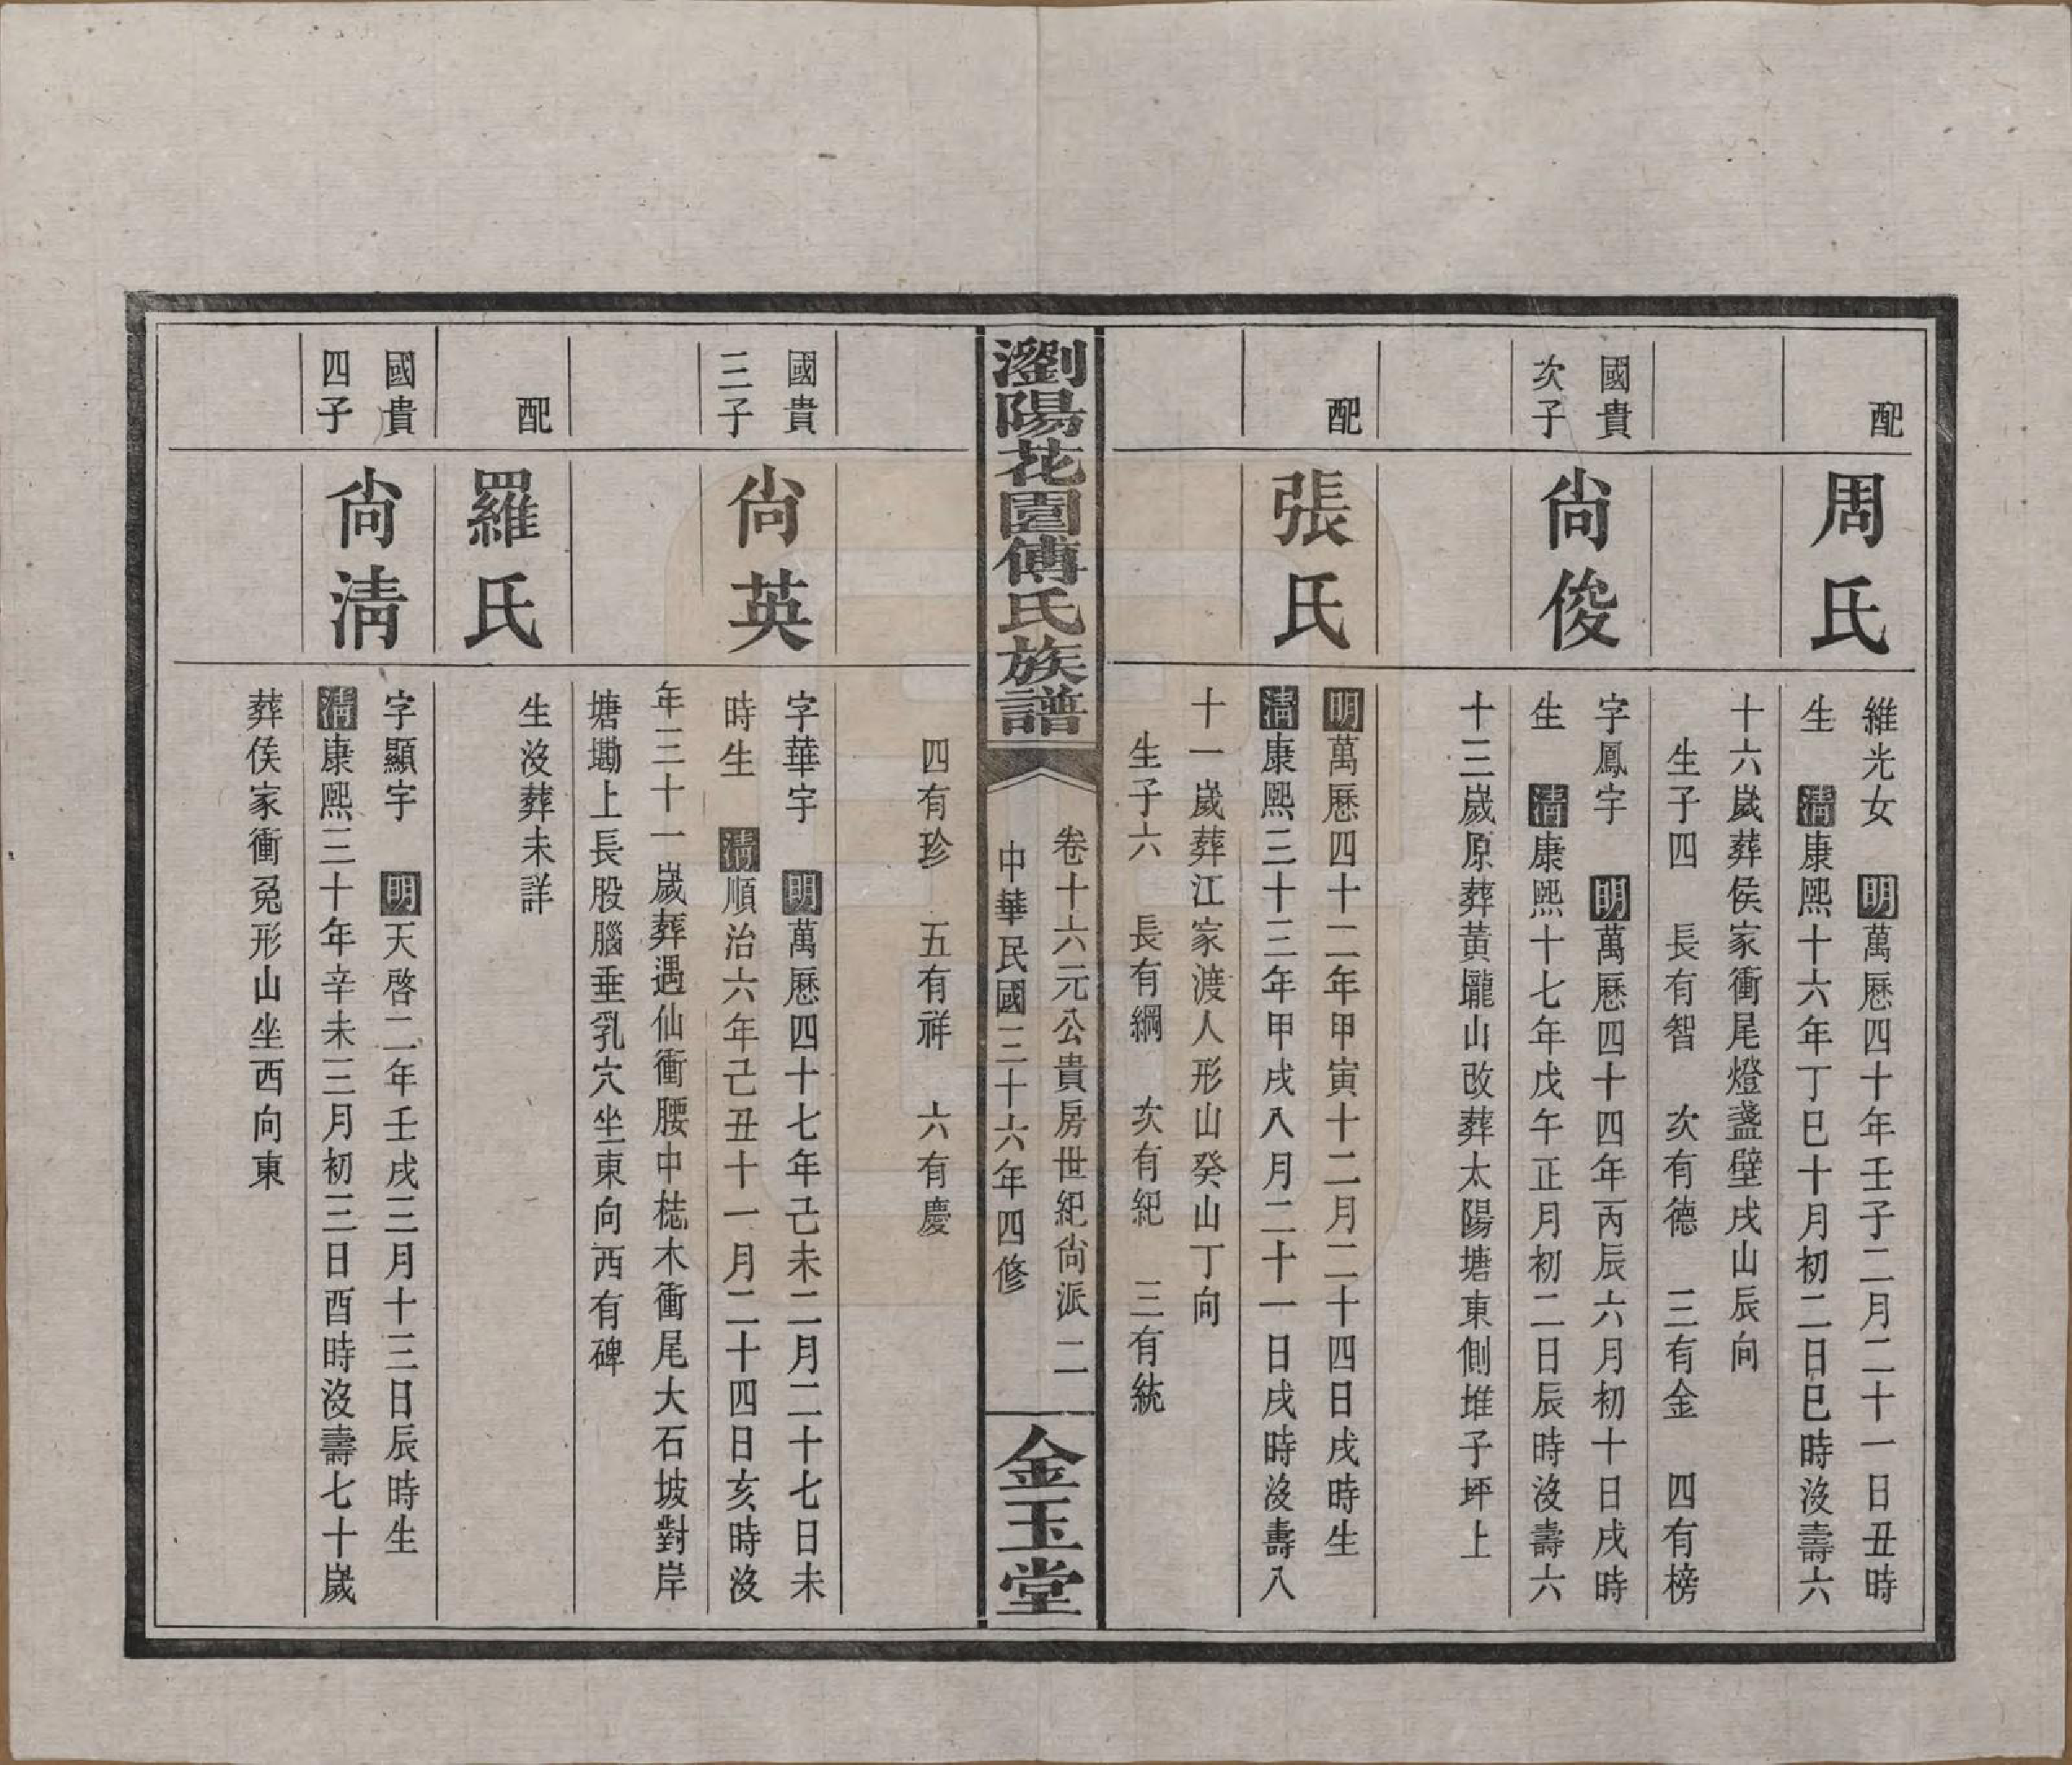 配
周氏
維光女　明萬厯四十年壬子二月二十一日丑時
生　清康熙十六年丁巳十月初二日巳時沒壽六
十六嵗葬侯家衝尾燈盞壁戌山辰向
生子四　長有智　次有德　三有金　四有榜
國貴
次子
尚俊
字鳳宇　明萬厯四十四年丙辰六月初十日戌時
生　清康熙十七年戊午正月初二日辰時沒壽六
十三嵗原葬黃壠山改葬太陽塘東側堆子坪上
配
張氏
明萬厯四十二年甲寅十二月二十四日戌時生
清康熙三十三年甲戌八月二十一日戌時沒壽八
十一嵗葬江家渡人形山癸山丁向
生子六　長有綱　次有紀　三有統
瀏陽花園傅氏族譜
卷十六元公貴房世紀尚派　二
中華民國三十六年四修
金玉堂
四有珍　五有祥　六有慶
國貴
三子
尚英
字華宇　明萬厯四十七年己未二月二十七日未
時生　清順治六年己丑十一月二十四日亥時沒
年三十一嵗葬遇仙衝腰中梽木衝尾大石坡對岸
塘墈上長股腦垂乳穴坐東向西有碑
配
羅氏
生沒葬未詳
國貴
四子
尚清
字顯宇　明天啓二年壬戌三月十三日辰時生
清康熙三十年辛未三月初三日酉時沒壽七十嵗
葬侯家衝兔形山坐西向東